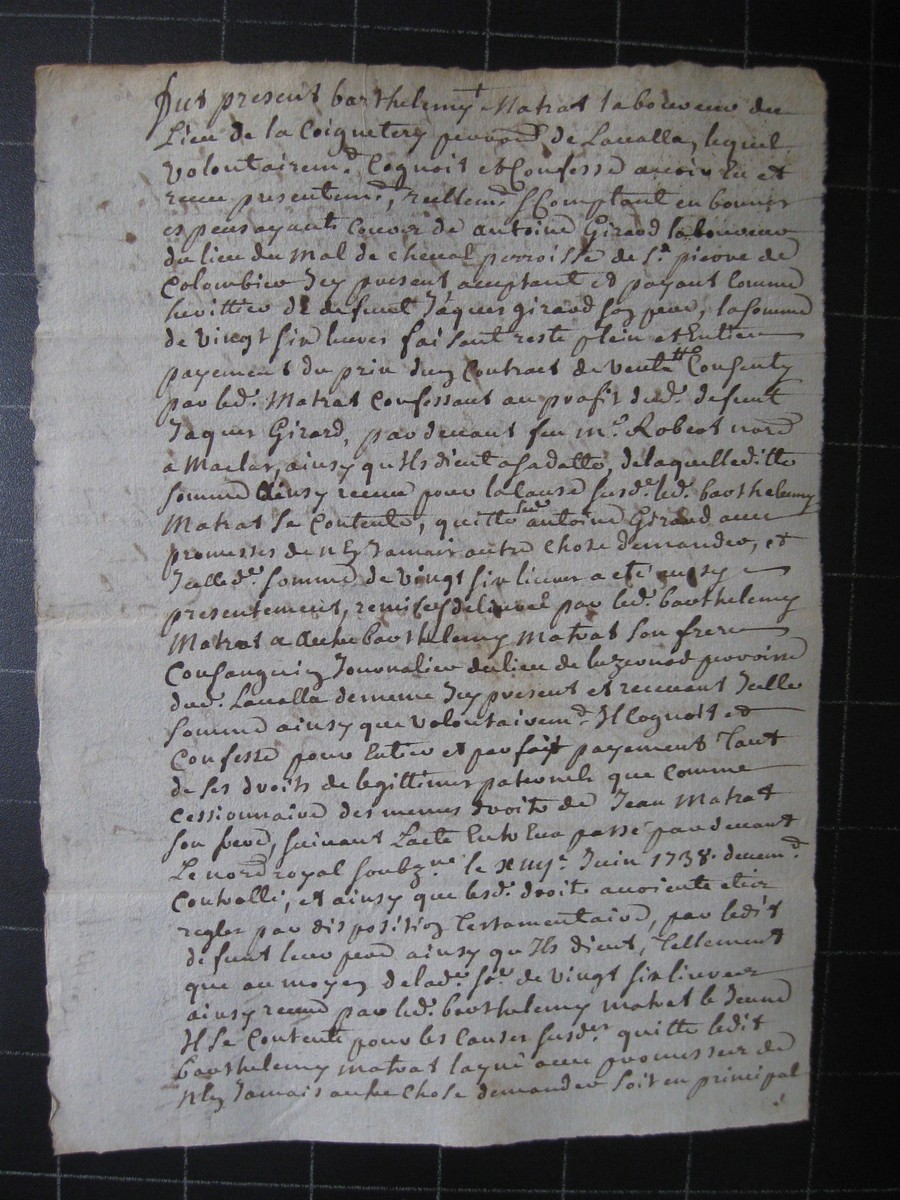 fut present barthelemy Matrat laboureur du
Lieu de la Coignetery parroiss.e de Laualla, lequel
Volontairem.t Cognoit et Confesse auoir Eu et
receu presentem.t, reellem.t Comptant en bonnes
espens ayant Cours de antoine Girard laboureur
du lieu du Mal de cheual parroisse de S.t pierre de
Colombier Icy present acceptant et payant Comme
heritier de defunt Jaques Girard son pere, la somme
de Vingt six liures faisant reste plein et Entier
payement du prix du Contract de vente Consenty
par led.t Matrat Confessant au profit dud.t defunt
Jaques Girard, par deuant feu m.e Robert no.re
a Maclas, ainsy qu'Ils dient a sa datte, de laquelle ditte
somme ainsy receue pour la Cause susd.e led.t barthelemy
Matrat se Contente, quitte led. antoine Girard auec
promesses de n'En Jamais autre Chose demander, et
Icelle d.e somme de Vingt six liures a eté aussy
presentement, remise, deliuré par led.t barthelemy
Matrat a autre barthelemy Matrat son frere
Consanguin Journalier du lieu de luzernod parroisse
dud.t Laualla de meme Icy present et receuant Icelle
somme ainsy que volontairem.t Il Cognoit et
Confesse pour Entier et parfait payement Tant
de ses droits de legittimes paternele que comme
cessionnaire des memes droits de Jean Matrat
son frere, suiuant L'acte Entr'Eux passé par deuant
Le no.re royal soubz.né le Juin 1738. deuem.t
Controllé, et ainsy que lesd.t droits auoient etés
regler par disposition Testamentaire, par ledit
defunt leur pere ainsy qu'Ils dient, Tellement
que au moyen de lad.e so.e de vingt six liures
ainsy receue par led.t barthelemy matrat le Jeune
Il se Contente pour les Causes susd.es quitte ledit
barthelemy matrat layné auec promesses de
n'En Jamais autre Chose demander soit en principal